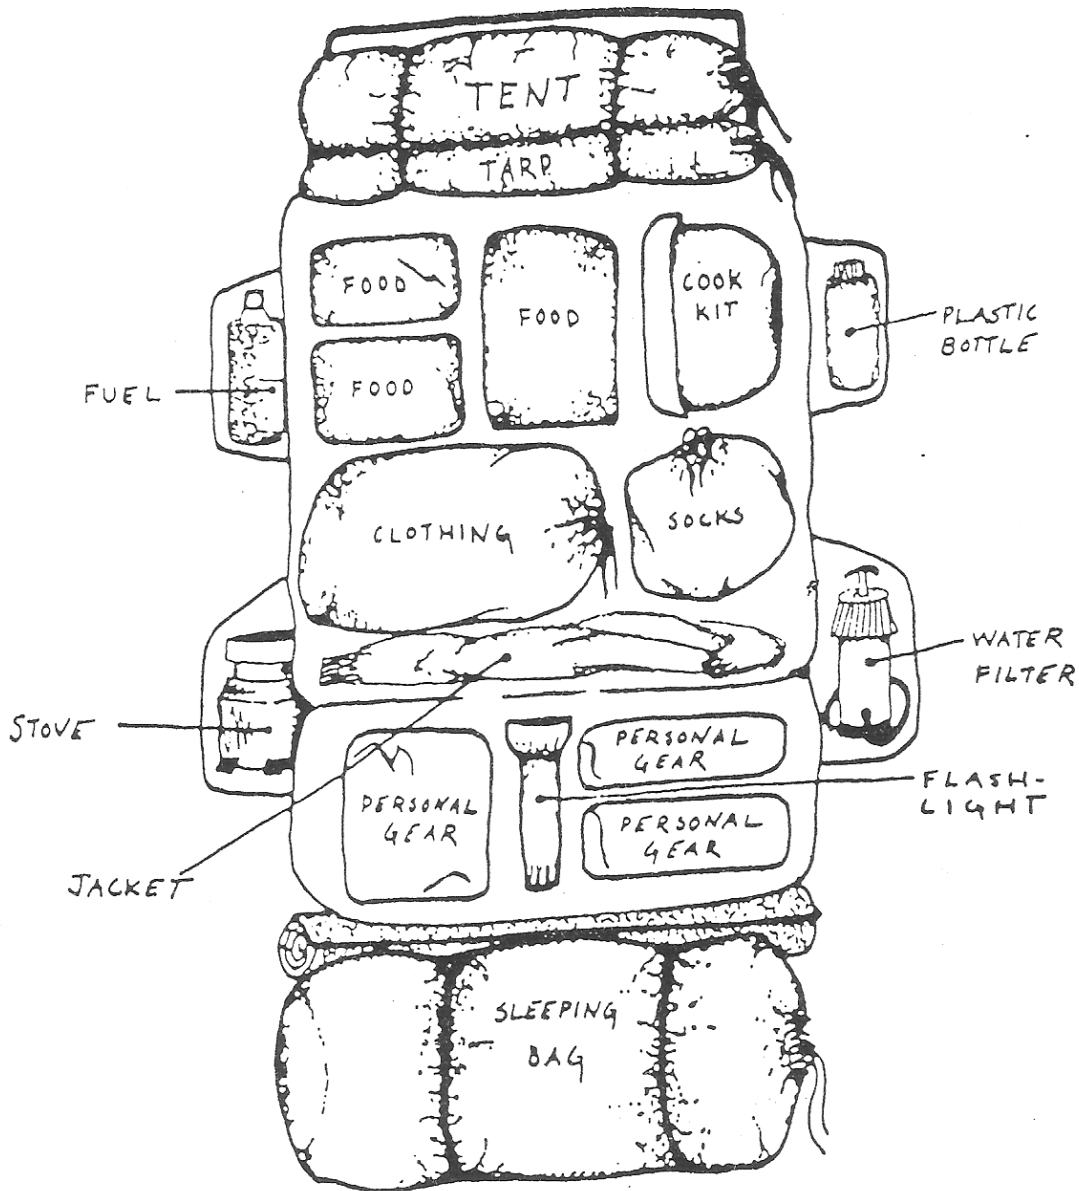 TENT
TARP
FOOD
FOOD
FOOD
COOK
KIT
PLASTIC
BOTTLE
FUEL
CLOTHING
SOCKS
WATER
FILTER
STOVE
PERSONAL
GEAR
PERSONAL
GEAR
PERSONAL
GEAR
FLASH-
LIGHT
JACKET
SLEEPING
BAG